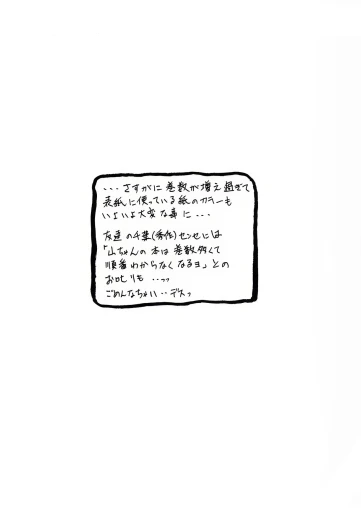 ・・・さすがに巻数が増え過ぎて
表紙に使っている紙のカラーも
いよいよ大変な事に・・・
友達の千葉(秀作)センセには
「山ちゃんの本は巻数多くて
順番わからなくなるヨ」との
お叱りも・・・ッッ
ごめんなちゃい・・デスッ